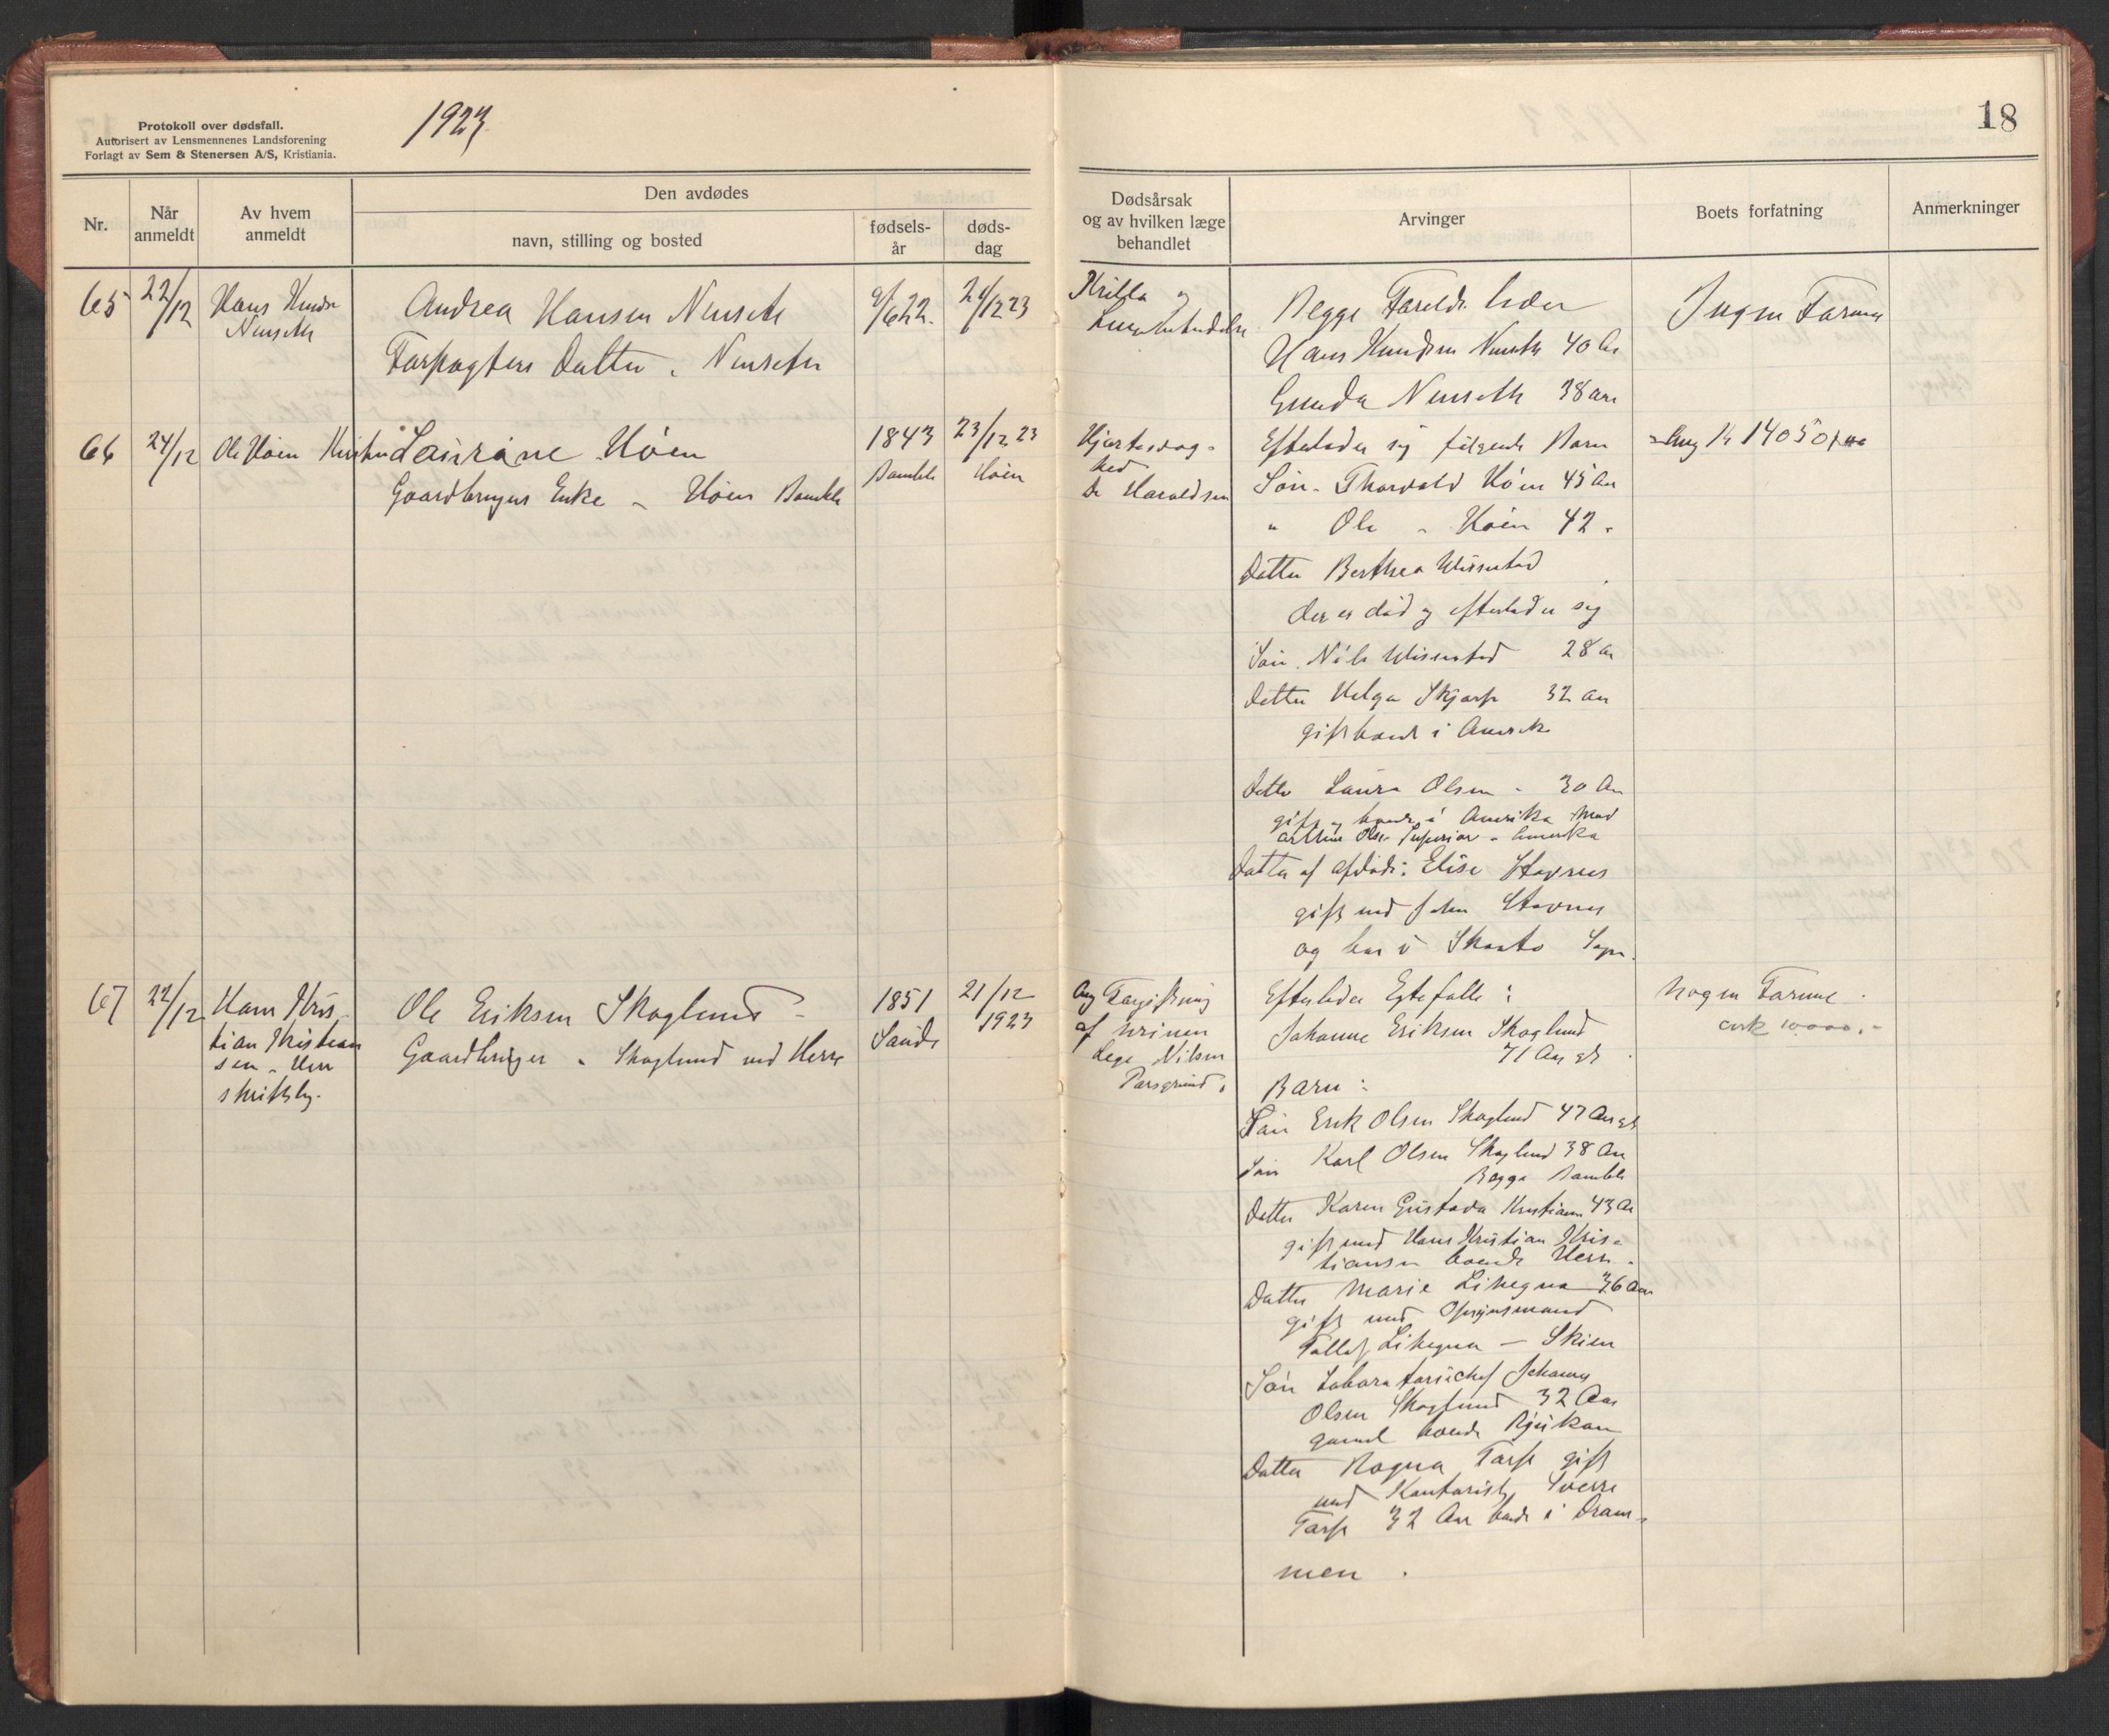 Protokoll over dødsfall.
Autorisert av Lensmennenes Landsforening
Forlagt av Sem & Stenersen A/S, Kristiania.
1923
18
Nr.
Når anmeldt
Av hvem anmeldt
Den avdødes
navn, stilling og bosted
fødsels-år
døds-dag
Dødsårsak
og av hvilken læge
behandlet
Arvinger
Boets forfatning
Anmerkninger
65
22/12
Hans
Nenseth
Andrea Hansen Nenseth
Forpagters Datter. Nenseth
9/6 22.
Begge Foreldr. lever
Hans Knudsen Nenseth 40 Aar
Gunda Nenseth 38 aar
Ingen Formue
66
24/12
Ole Höen
Laurine Höen
Gaardbrugers Enke - Höen Bamble
1843
Bamble
23/12 23
Höen
Hjertesvag-
hed
Dr Haraldsen
Efterlader sig følgende Barn
Sön - Thorvald Höen 45 Aar
" Ole - Höen 42 "
Datter Berthea
der er död og efterlader sig
Sön. Nils 28 Aar
Datter Helga 32 Aar
gift boende i Amerika
Datter Laura Olsen - 30 Aar
gift og boende i Amerika med
Olsen Superior - Amerika
Datter af afdøde: Elise Stavnes
gift med John Stavnes
og bor i Skaato Sogn.
67
22/12
Hans Kris-
tian Kristian
sen - Herre
Ole Eriksen Skoglund -
Gaardbruger - Skoglund ved Herre
1851
21/12
1923
Forgiftning
af urinen
Læge Nilsen
Porsgrund.
Efterlader Egtefælle:
Johanne Eriksen Skoglund
71 Aar gl.
Barn:
Sön Erik Olsen Skoglund 47 Aar gl
Sön Karl Olsen Skoglund 38 Aar
Bamble
Datter Karen Gustava Kristiansen 43 Aar
gift med Hans Kristian Kris-
tiansen boende Herre.
Datter Marie 36 Aar
gift med Opsynsmand
— Skien
Sön Laboratoriechef Johannes
Olsen Skoglund 32 Aar
gammel boende Rjukan
Datter Ragna Torp gift
med Kontorist Sverre
Torp 32 Aar bende i Dram-
men.
Nogen Formue.
cirk 10000.-